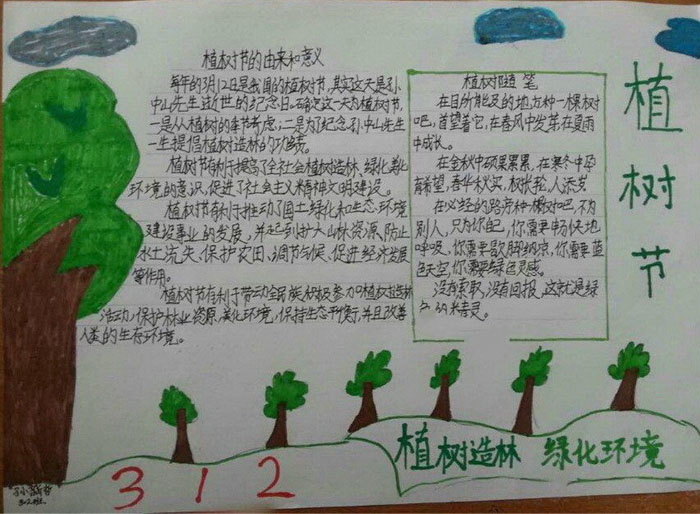 植树节的由来和意义
每年的3月12日是我国的植树节,其实这天是孙
中山先生逝世的纪念日。确定这一天为植树节,
一是从植树的季节考虑;二是为了纪念孙中山先生
一生提倡植树造林的功绩。
植树节有利于提高了全社会植树造林、绿化美化
环境的意识,促进了社会主义精神文明建设。
植树节有利于推动了国土绿化和生态环境
建设事业的发展,并起到扩大山林资源、防止
水土流失、保护农田、调节气候、促进经济发展
等作用。
植树节有利于带动全民族积极参加植树造林
活动,保护林业资源,美化环境,保持生态平衡,并且改善
人类的生存环境。
植树随笔
在目所能及的地方种一棵树
吧,首望着它,在春风中发芽在夏雨
中成长。
在金秋中硕果累累,在寒冬中孕
育希望,春华秋实,树长轮,人添岁
在必经的路旁种一棵树吧,不为
别人,只为你自己,你需要畅快地
呼吸,你需要歇脚纳凉,你需要蓝
色天空,你需要绿色灵感。
没有索取,没有回报,这就是绿
色的精灵。
植
树
节
植树造林 绿化环境
3 1 2